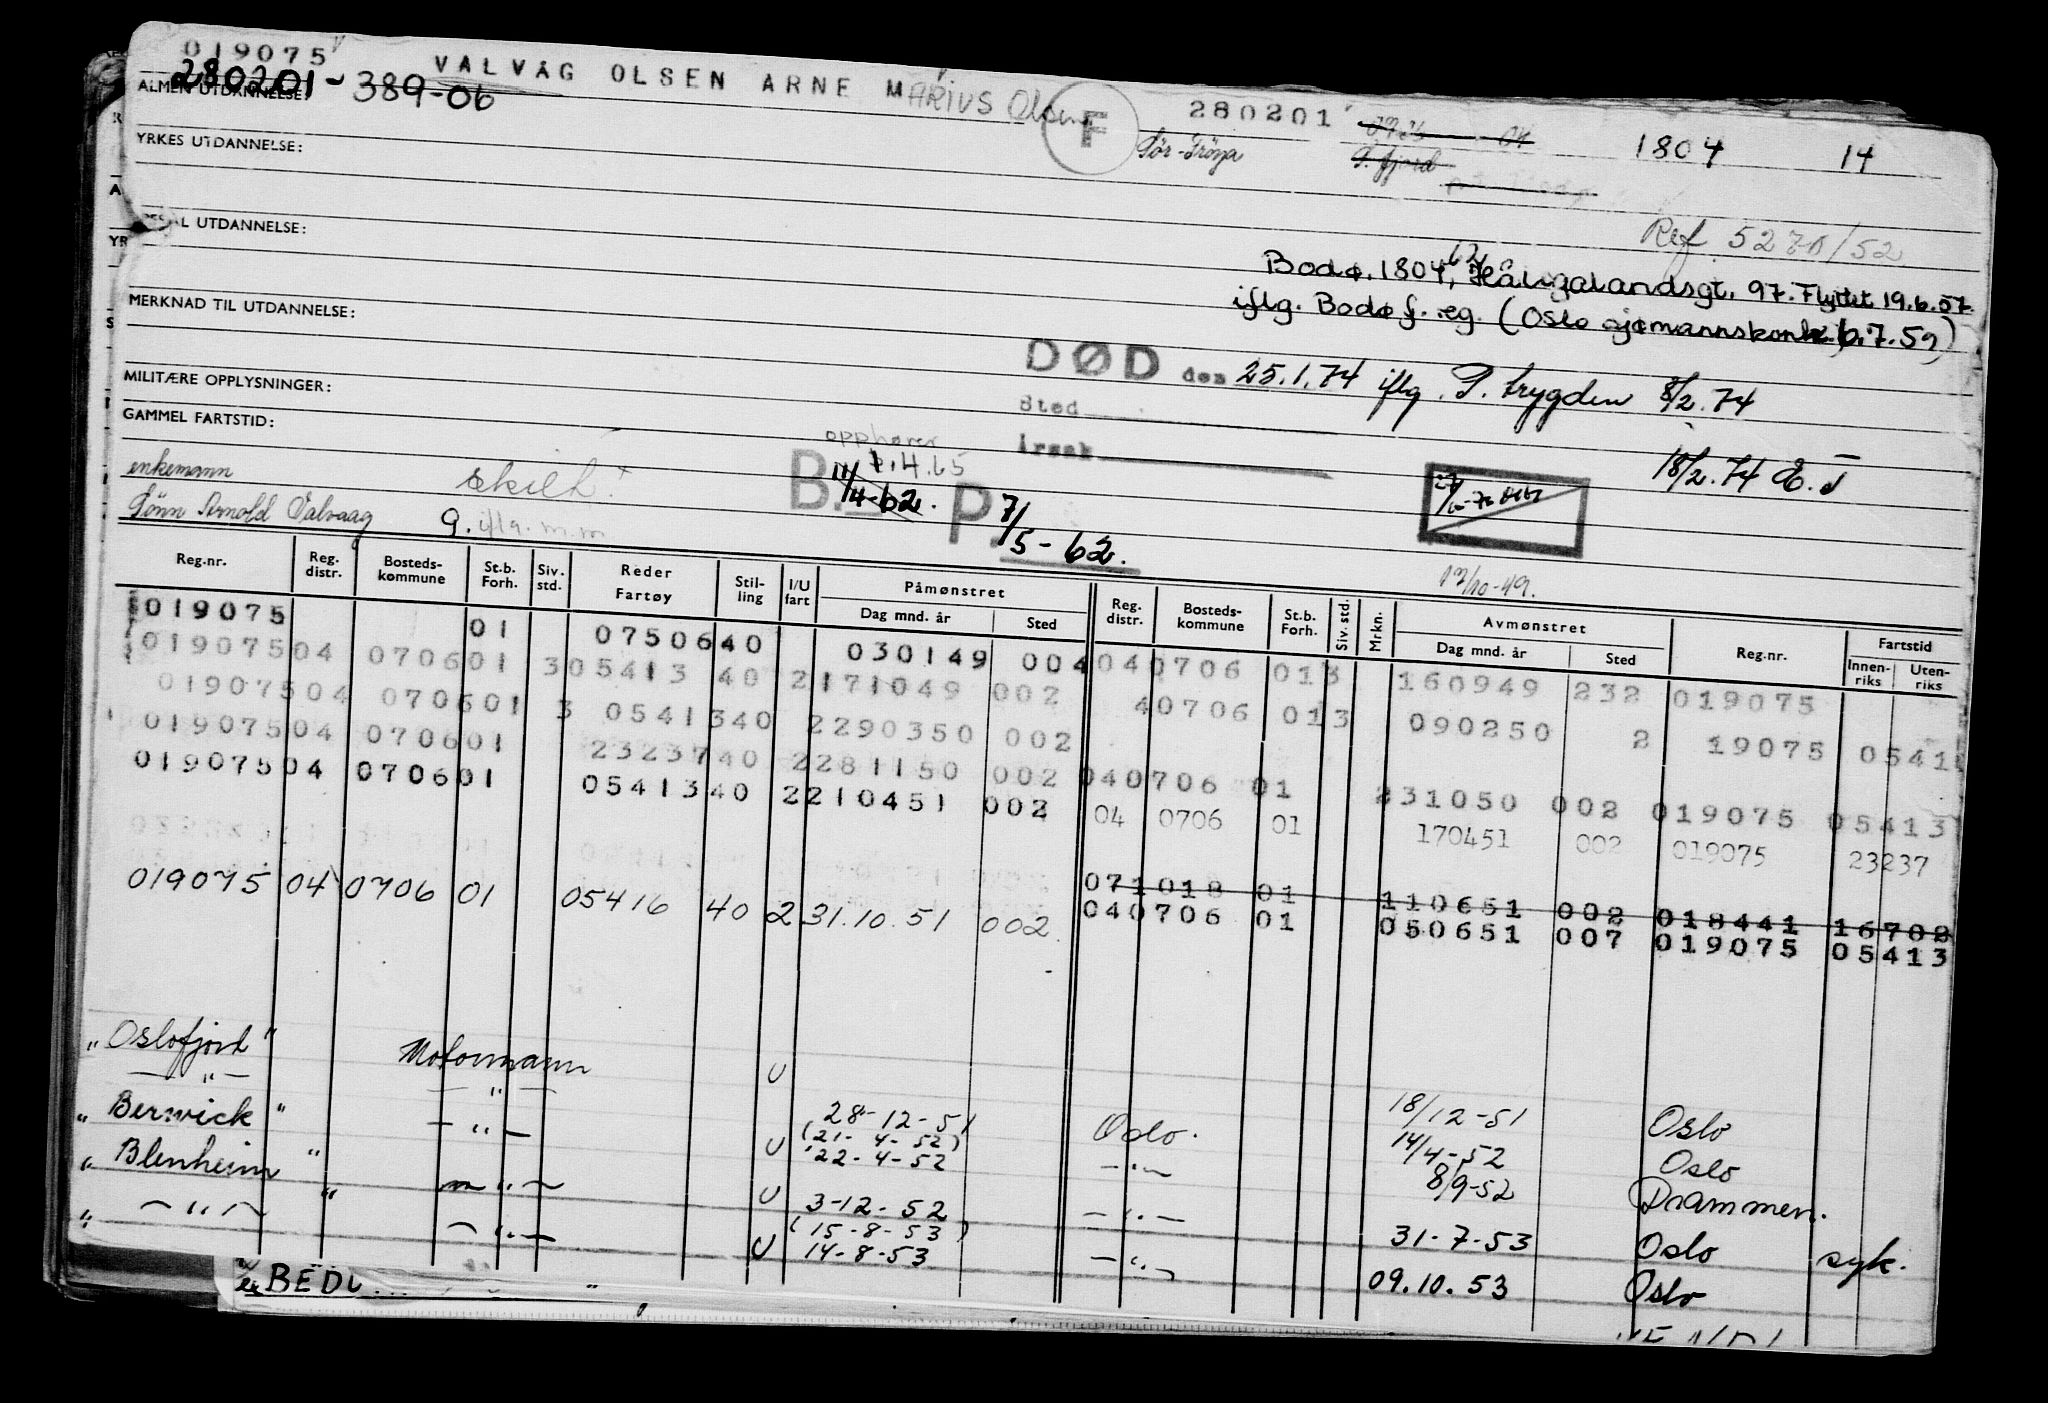 019075
280201-389-06
VALVÅG OLSEN ARNE MARIUS Olsen
F
280201
1804 14
ALMEN UTDANNELSE:
Sør-Frøya
YRKES UTDANNELSE:
SPESIAL UTDANNELSE:
Ref.
Bodø. 1804, Hålogalandsgt. 97. Flyttet 19.6.57
iflg. Bodø f. reg. (Oslo sjømannskont. 6.7.59)
MERKNAD TIL UTDANNELSE:
DØD den 25.1.74 iflg. P. trygden 8/2.74
MILITÆRE OPPLYSNINGER:
Sted
GAMMEL FARTSTID:
Årsak
opphører 1.4.65
18/2.74 E.J
enkemann
skilt.
B. 11/4-62.
P. 7/5-62.
Sønn Arnold Valvaag
g. iflg. m.m
17/10-49.
Reg.nr. Reg. distr. Bosteds-kommune St.b. Forh. Siv. std. Reder Fartøy Stil-ling I/U fart Påmønstret Dag mnd. år Sted Reg. distr. Bosteds-kommune St.b. Forh. Siv. std. Mrkn. Avmønstret Dag mnd. år Sted Reg.nr. Fartstid Innen-riks Uten-riks
019075 01 0750640 030149 004 040706 013 160949 232 019075
019075 04 0706 01 3 05413 40 2 171049 002 40706 013 090250 2 19075 0541
019075 04 0706 01 3 05413 40 2 290350 002
019075 04 0706 01 23237 40 2 281150 002 040706 01 231050 002 019075 05413
019075 04 0706 01 05413 40 2 210451 002 04 0706 01 170451 002 019075 23237
071018 01 110651 002 018441 16702
019075 04 0706 01 05416 40 2 31.10.51 002 040706 01 050651 007 019075 05413
"Oslofjord" Motormann U 18/12-51 Oslo
— " — — " — 28-12-51 Oslo. 14/4-52 Oslo
"Berwick" — " — U (21-4-52) 22-4-52 — " — 8/9-52 Drammen.
"Blenheim" — " — U 3-12-52 — " — 31-7-53 Oslo syk.
" — " — " — " — U (15-8-53) 14-8-53 — " — 09.10.53 Oslo